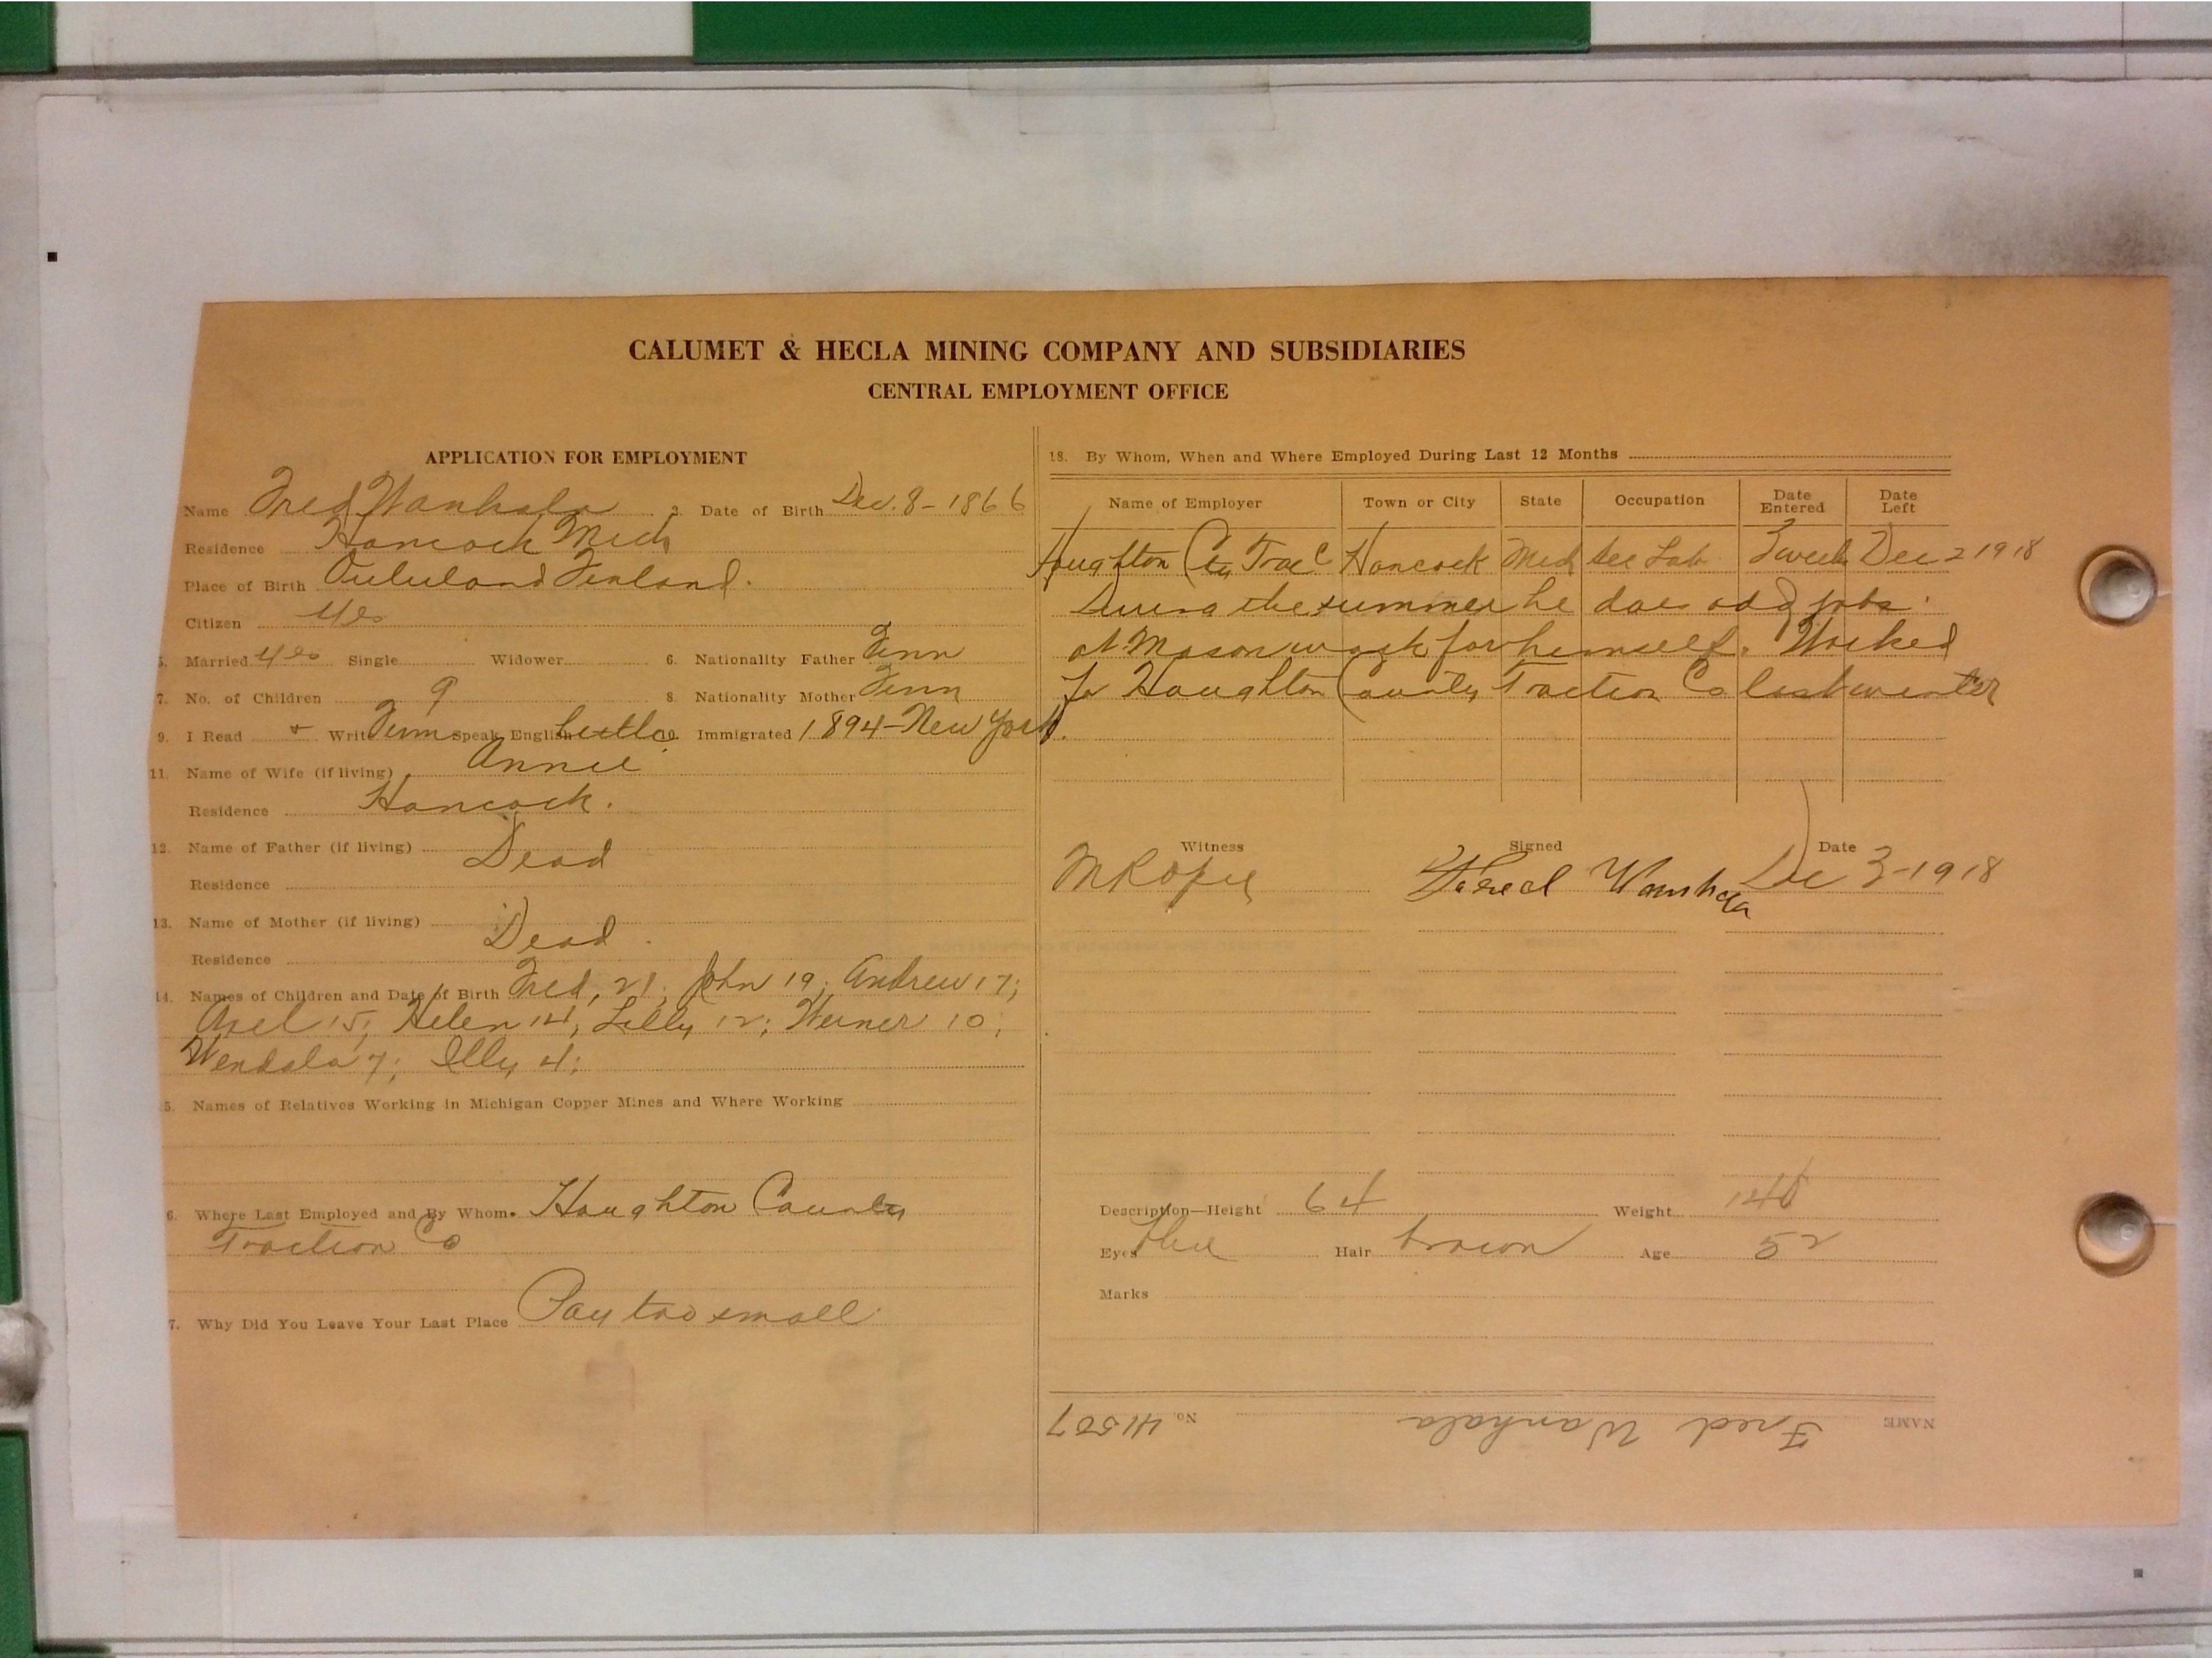 CALUMET & HECLA MINING COMPANY AND SUBSIDIARIES
CENTRAL EMPLOYMENT OFFICE
APPLICATION FOR EMPLOYMENT
Name Fred Wanhala 3. Date of Birth Dec. 8 - 1866
Residence Hancock Mich
Place of Birth Finland.
Citizen yes
5. Married yes Single Widower 6. Nationality Father Finn
7. No. of Children 9 8. Nationality Mother Finn
9. I Read + Write Finn Speak English little Immigrated 1894 - New York.
11. Name of Wife (if living) Annie
Residence Hancock.
12. Name of Father (if living) Dead
Residence
13. Name of Mother (if living) Dead
Residence
14. Names of Children and Date of Birth Fred, 21; John 19; Andrew 17;
Axel 15; Helen 14; Lilly 12; Werner 10;
Wendala 7; Elly 4;
5. Names of Relatives Working in Michigan Copper Mines and Where Working
6. Where Last Employed and By Whom. Houghton County
Traction Co
7. Why Did You Leave Your Last Place Pay too small
18. By Whom, When and Where Employed During Last 12 Months
Name of Employer Town or City State Occupation Date Entered Date Left
Houghton Co Trac C Hancock Mich Lab 3 week Dec 2 1918
During the summer he does odd jobs
at Mason work for himself. Worked
for Houghton County Traction Co last winter
Witness Signed Date
Fred Wanhala Dec 3 - 1918
Description—Height 64 Weight 140
Eyes Blue Hair brown Age 52
Marks
NAME Fred Wanhala No. 41507